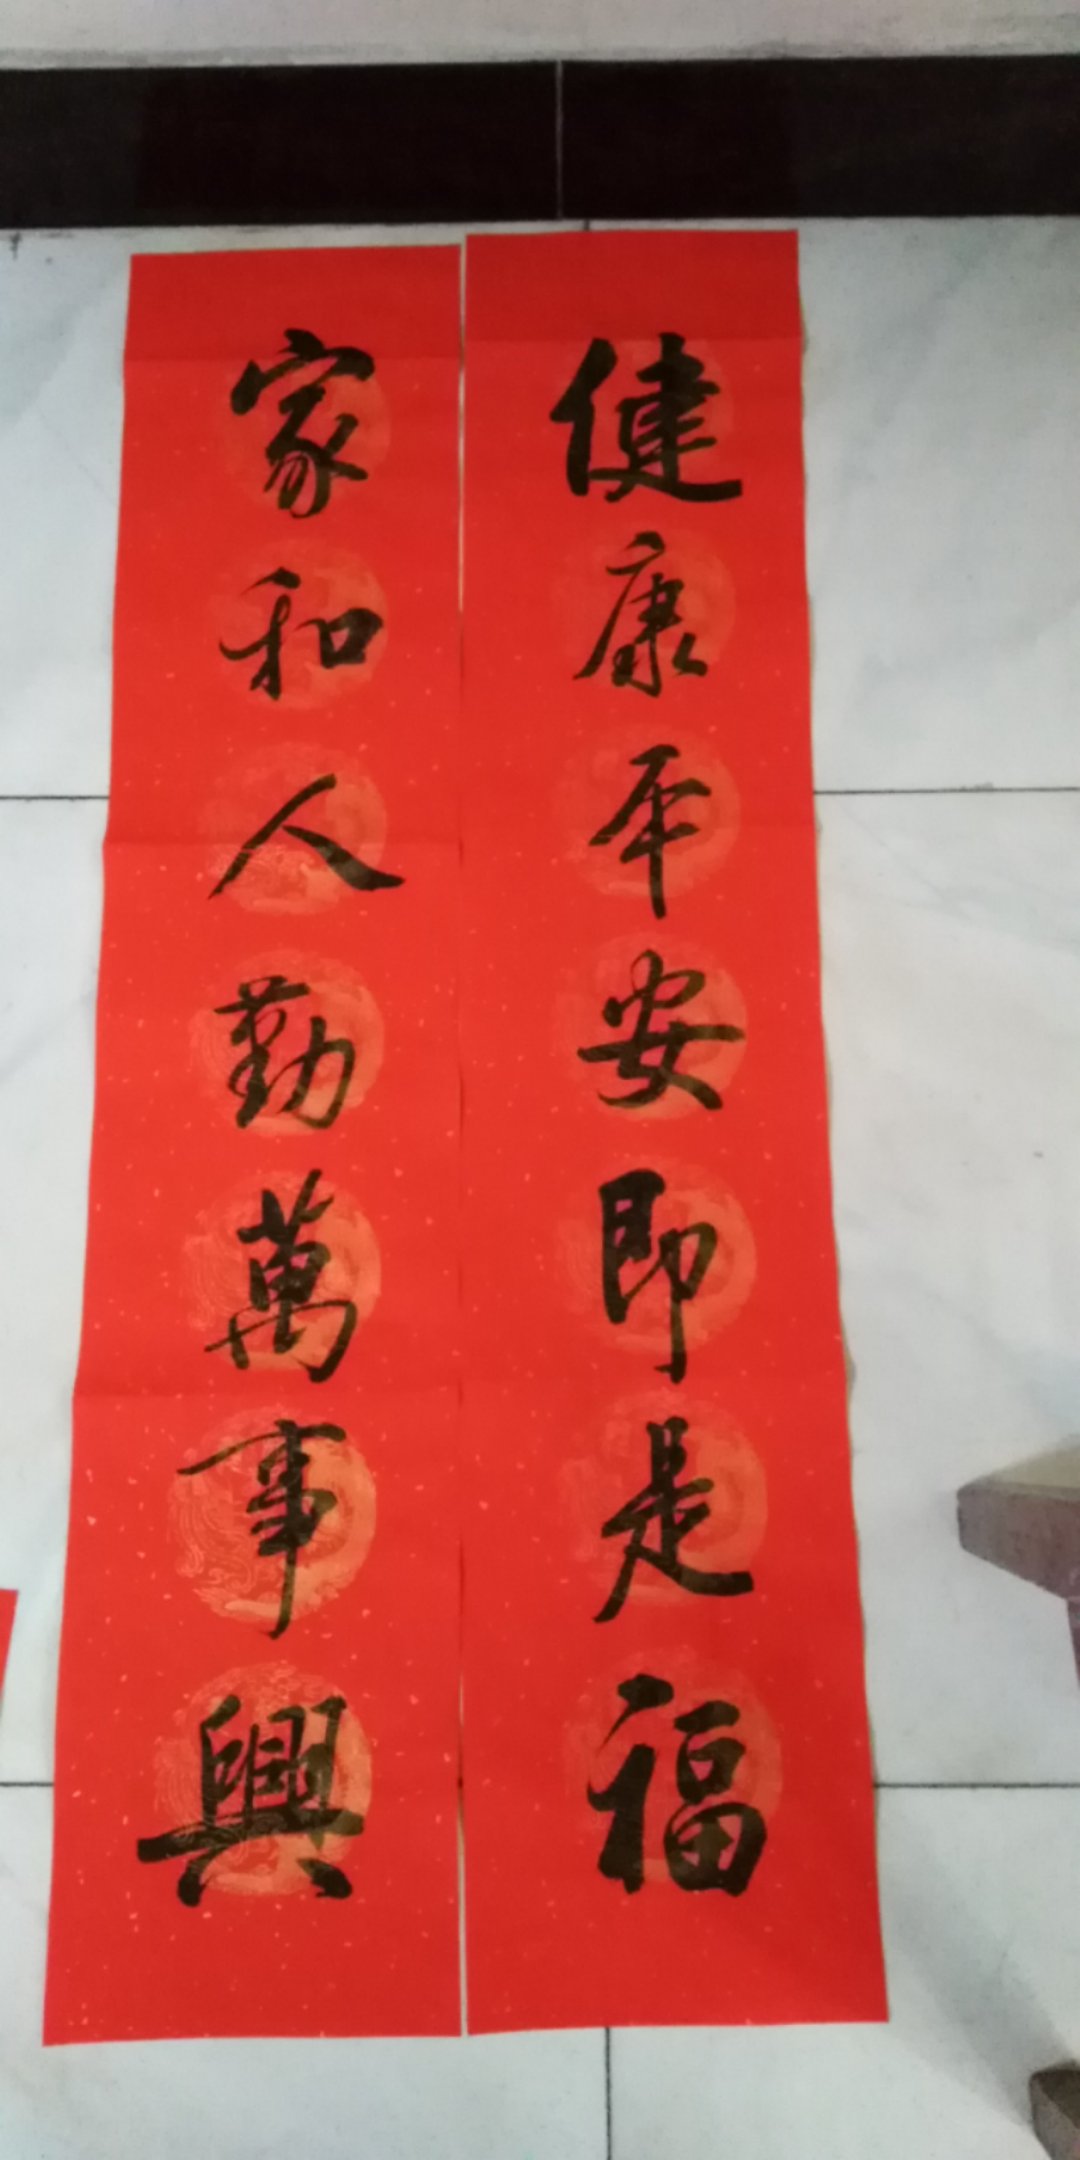 健康平安即是福
家和人勤萬事興